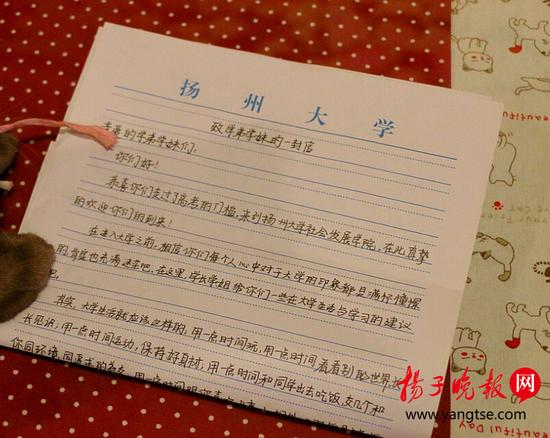 扬州大学
致学弟学妹的一封信
亲爱的学弟学妹们:
你们好!
恭喜你们走过了高考的门槛,来到扬州大学社会发展学院,在此真挚
的欢迎你们的到来!
在进入大学之前,相信你们每个人心中对于大学的印象都是满怀憧憬
的
吧。在这里,学长学姐给你们一些在大学生活与学习的建议
其实,大学生活就应该这样的:用一点时间玩,用一点时间看看别处世界,
长见识,用一点时间运动,保持好身材,用一点时间和同学出去吃饭,交几个和
你同环境
扬子晚报网
www.yangtse.com
Beautiful Day